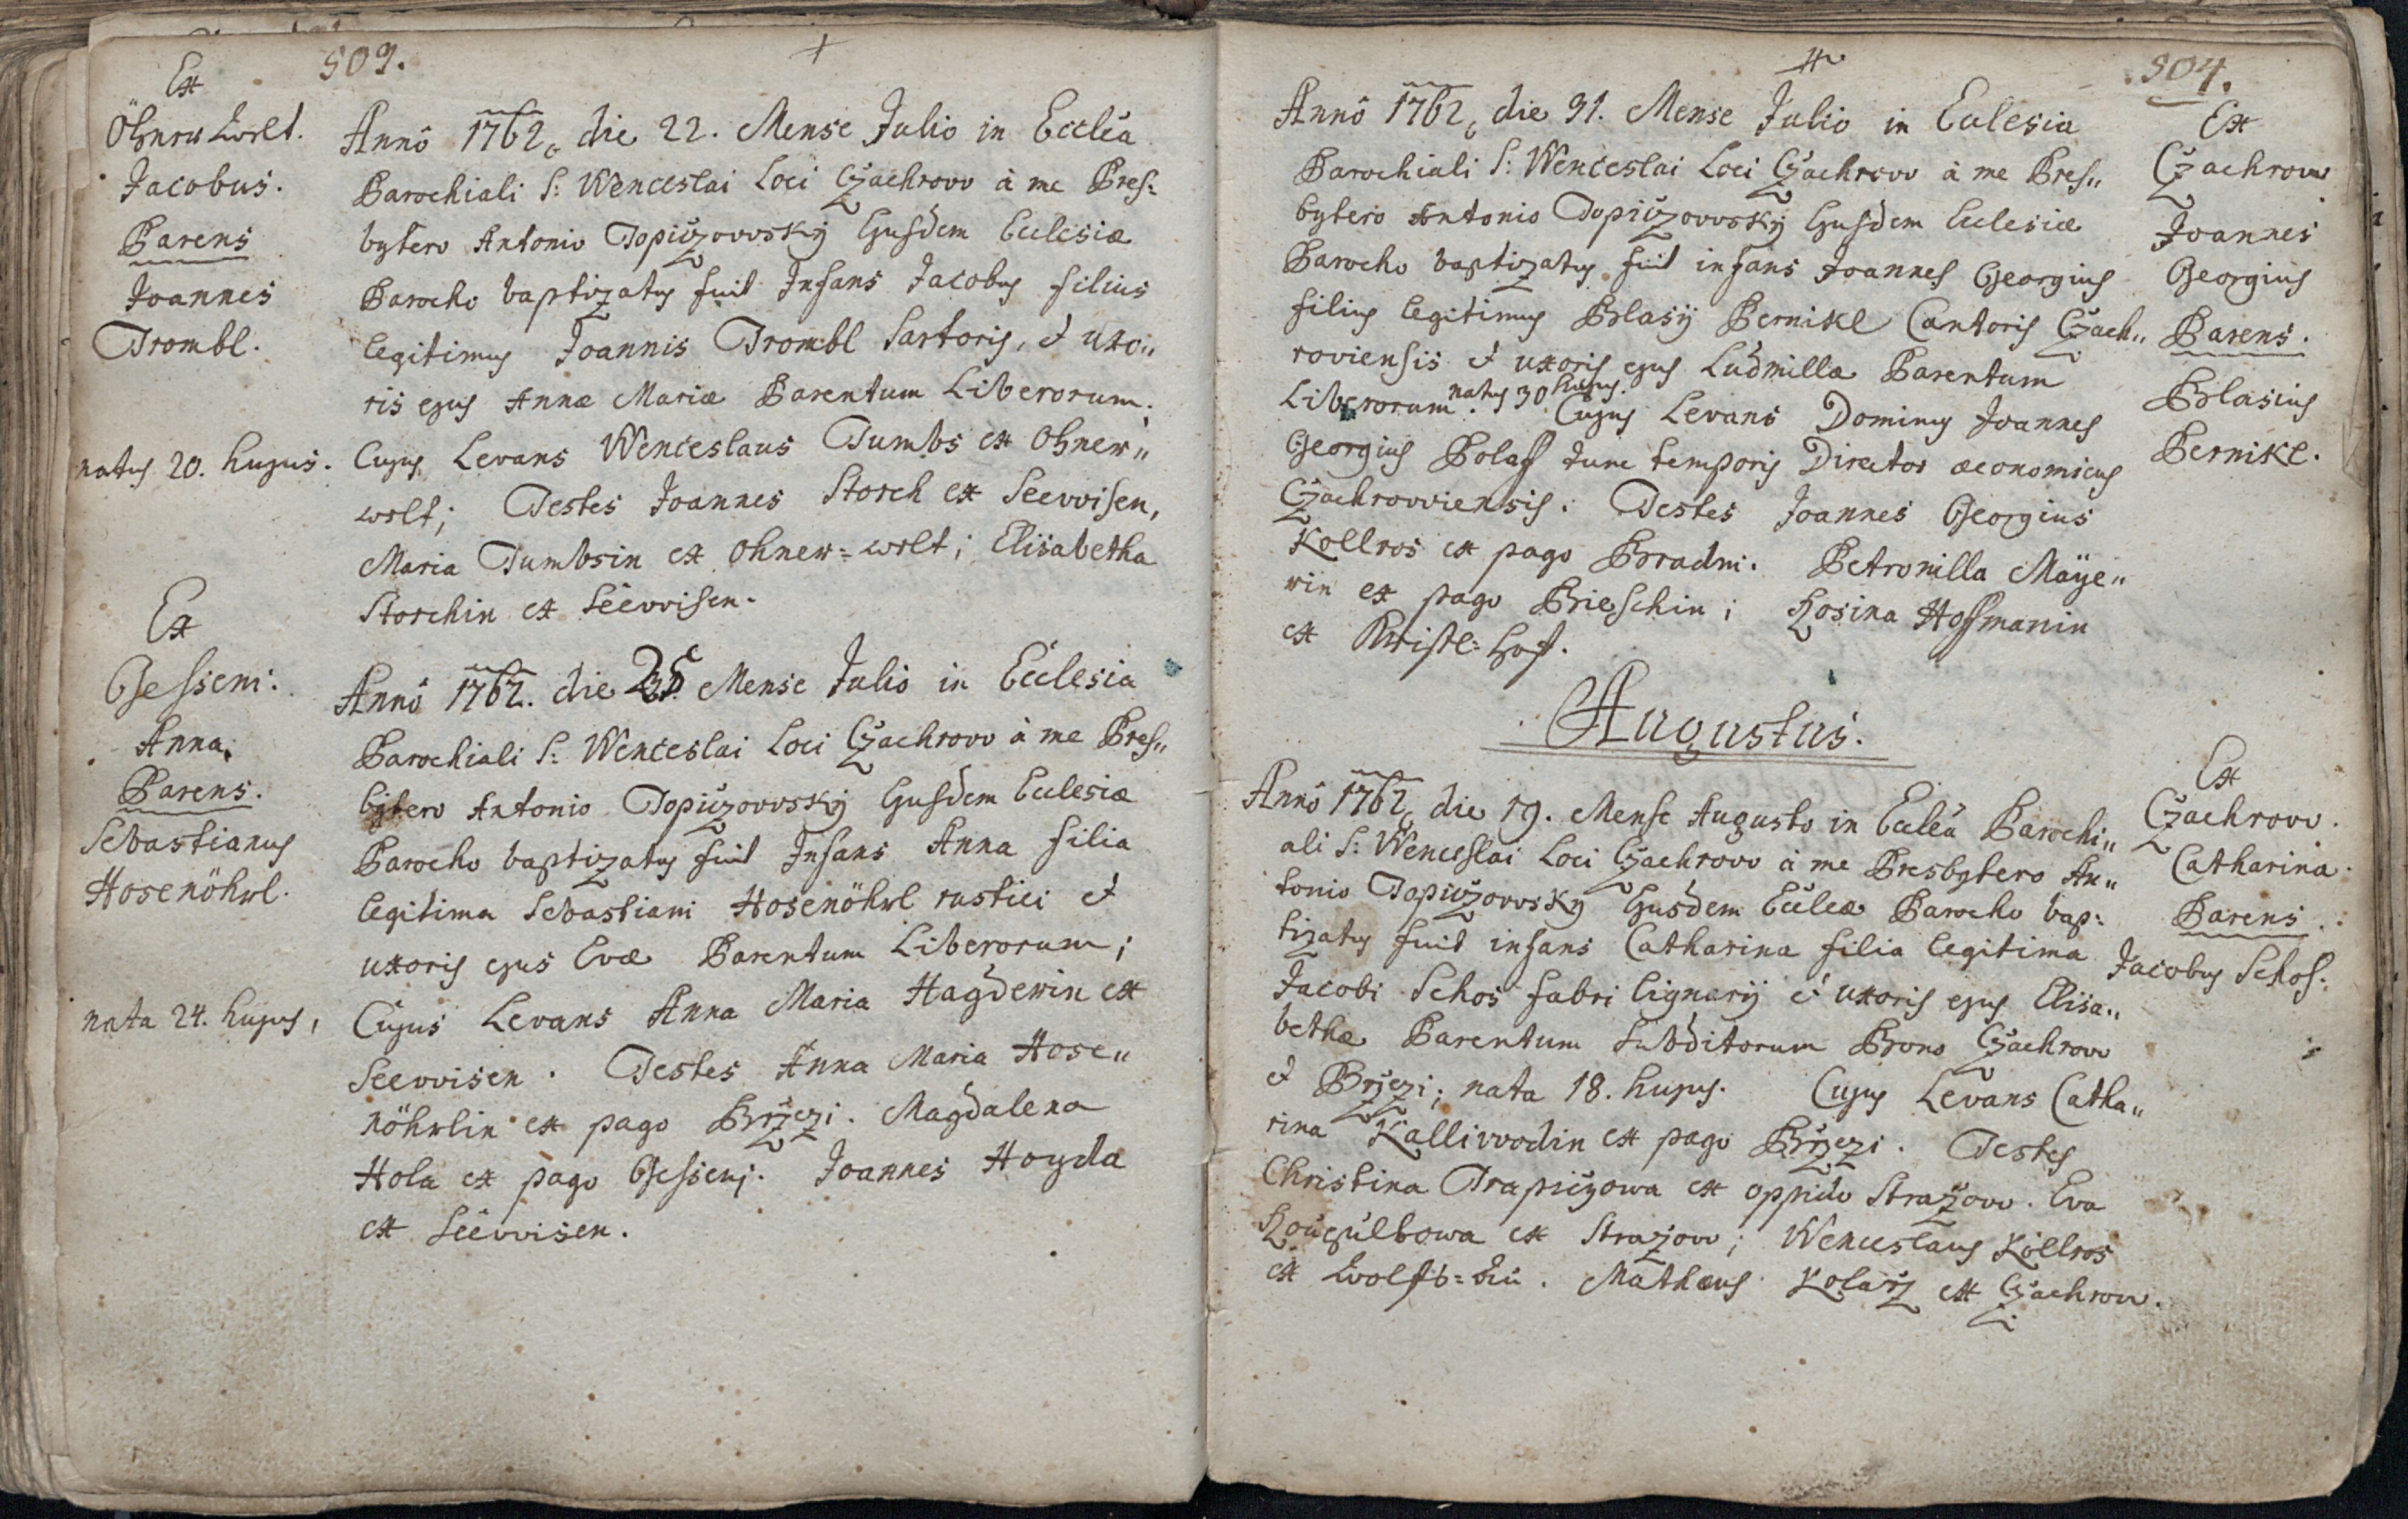 503.
Ex
Öhnew Lwelt.
Jacobus.
Parens
Joannes
Trombl.
natus 20. hujus.
Anno 1762, die 22. Mense Julio in Eccleâ
Parochiali S: Wenceslai Loci Czachrow à me Pres:
bytero Antonio Topiczowsky Ejusdem Ecclesiæ
Parocho baptizatus fuit Infans Jacobus filius
legitimus Joannis Trombl Sartoris, et uxo„
ris ejus Annæ Mariæ Parentum Liberorum.
Cujus Levans Wenceslaus Tumbs ex Ohnew„
welt; Testes Joannes Storch ex Seewisen,
Maria Tumbsin ex Ohnew=welt; Elisabetha
Storchin ex Seewisen.
Ex
Gesseni:
Anna.
Parens.
Sebastianus
Hosenöhrl.
nata 24. hujus,
Anno 1762. die 25 Mense Julio in Ecclesia
Parochiali S: Wenceslai Loci Czachrow à me Pres„
bytero Antonio Topiczowsky Ejusdem Ecclesiæ
Parocho baptizatus fuit Infans Anna filia
legitima Sebastiani Hosenöhrl rustici et
uxoris ejus Evæ Parentum Liberorum;
Cujus Levans Anna Maria Hagdewin ex
Seewisen. Testes Anna Maria Hose„
nöhrlin ex pago Brzezi. Magdalena
Hola ex pago Gessenj. Joannes Hoyda
ex Seewisen.
504.
Anno 1762, die 31. Mense Julio in Eclesia
Parochiali S: Wenceslai Loci Czachrow à me Pres„
bytero Antonio Topiczowsky Ejusdem Eclesiæ
Parocho baptizatus fuit infans Joannes Georgius
filius legitimus Blasij Pernikl Cantoris Czach„
roviensis et uxoris ejus Ludmillæ Parentum
Liberorum. natus 30 hujus. Cujus Levans Dominus Joannes
Georgius Polass tunc temporis Director æconomicus
Czachrowiensis: Testes Joannes Georgius
Kollros ex pago Bradni. Petronilla Maÿe„
rin ex pago Prieschin; Rosina Hoffmanin
ex Kristl=Hof.
Ex
Czachrow
Joannes
Georgius
Parens.
Blasius
Pernikl.
Augustus.
Anno 1762, die 19. Mense Augusto in Eccleâ Parochi„
ali S: Wenceslai Loci Czachrow à me Presbytero An„
tonio Topiczowsky Ejusdem Eccleæ Parocho bap:
tizatus fuit infans Catharina filia legitima
Jacobi Schos fabri lignarij et uxoris ejus Elisa„
bethæ Parentum Subditorum Bono Czachrow
et Brzezi; nata 18. hujus. Cujus Levans Catha„
rina Kalliwodin ex pago Brzezi. Testes
Christina Trapiczowa ex oppido Strazow. Eva
ex Strazow; Wenceslaus Kollros
ex . Mathæus Kolarz ex Czachrow.
Ex
Czachrow.
Catharina.
Parens.
Jacobus Schos: